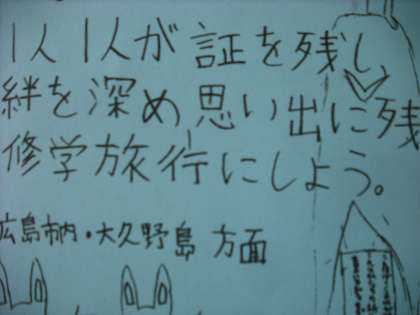 1人1人が証を残し、
絆を深め思い出に残
修学旅行にしよう。
広島市内・大久野島 方面